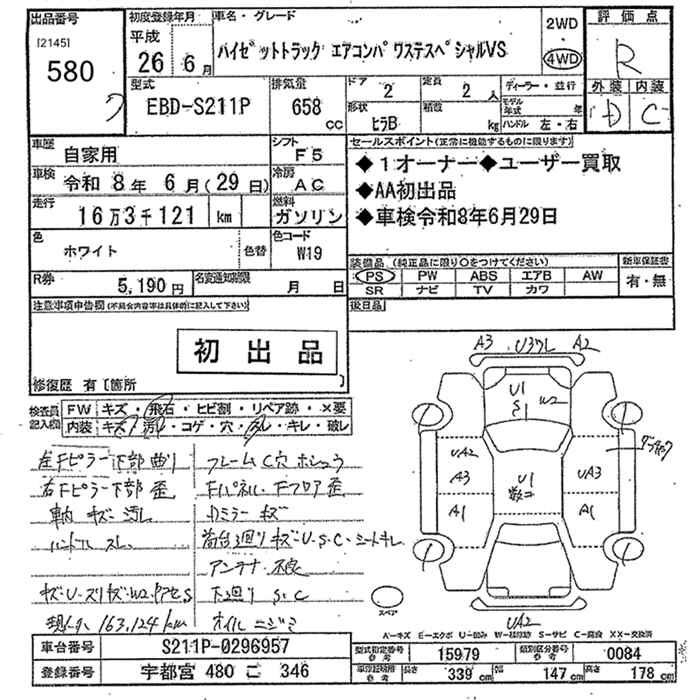 出品番号
[2145]
580
初度登録年月
平成
26年 6月
車名・グレード
ハイゼットトラック エアコンパワステスペシャルVS
2WD
4WD
評価点
R
型式
EBD-S211P
排気量
658 cc
ドア 2
定員 2人
形状 ヒラB
積載 kg
ディーラー・並行
モデル年式 年
ハンドル 左・右
外装 内装
D C
車歴 自家用
シフト F5
車検 令和 8年 6月(29日)
冷房 AC
走行 16万3千121 km
燃料 ガソリン
色 ホワイト 色替
色コード W19
R券 5,190円
名変通知期限 月 日
セールスポイント(正常に機能するものに限ります)
◆1オーナー◆ユーザー買取
◆AA初出品
◆車検令和8年6月29日
装備品 (純正品に限り○をつけてください)
新車保証書
PS PW ABS エアB AW
SR ナビ TV カワ
有・無
後日品
注意事項申告欄(不具合内容等は具体的に記入して下さい)
初出品
修復歴 有〔箇所
検査員記入欄
FW キズ・飛石・ヒビ割・リペア跡・×要
内装 キズ・汚レ・コゲ・穴・スレ・キレ・破レ
左Fピラー下部曲り
フレームC穴ホシュウ
右Fピラー下部歪
Fパネル・Fフロア歪
車内キズ・汚レ
Dミラーキズ
ハンドルスレ
荷台廻りキズ・U・S・C・シートキレ
アンテナ不良
キズ・U・スリキズ・W2
下廻りS・C
現メーター163,124km
オイルニジミ
A3 U3ワレ A2
U1 W2
UA2
A3
A1
U1
数コ
UA3
A1
UA2
スペア
A-キズ E-エクボ U-凹み W-補修跡 S-サビ C-腐食 XX-交換済
車台番号 S211P-0296957
登録番号 宇都宮 480 こ 346
型式指定番号 参考 15979
類別区分番号 参考 0084
長さ 339cm
幅 147cm
高さ 178cm